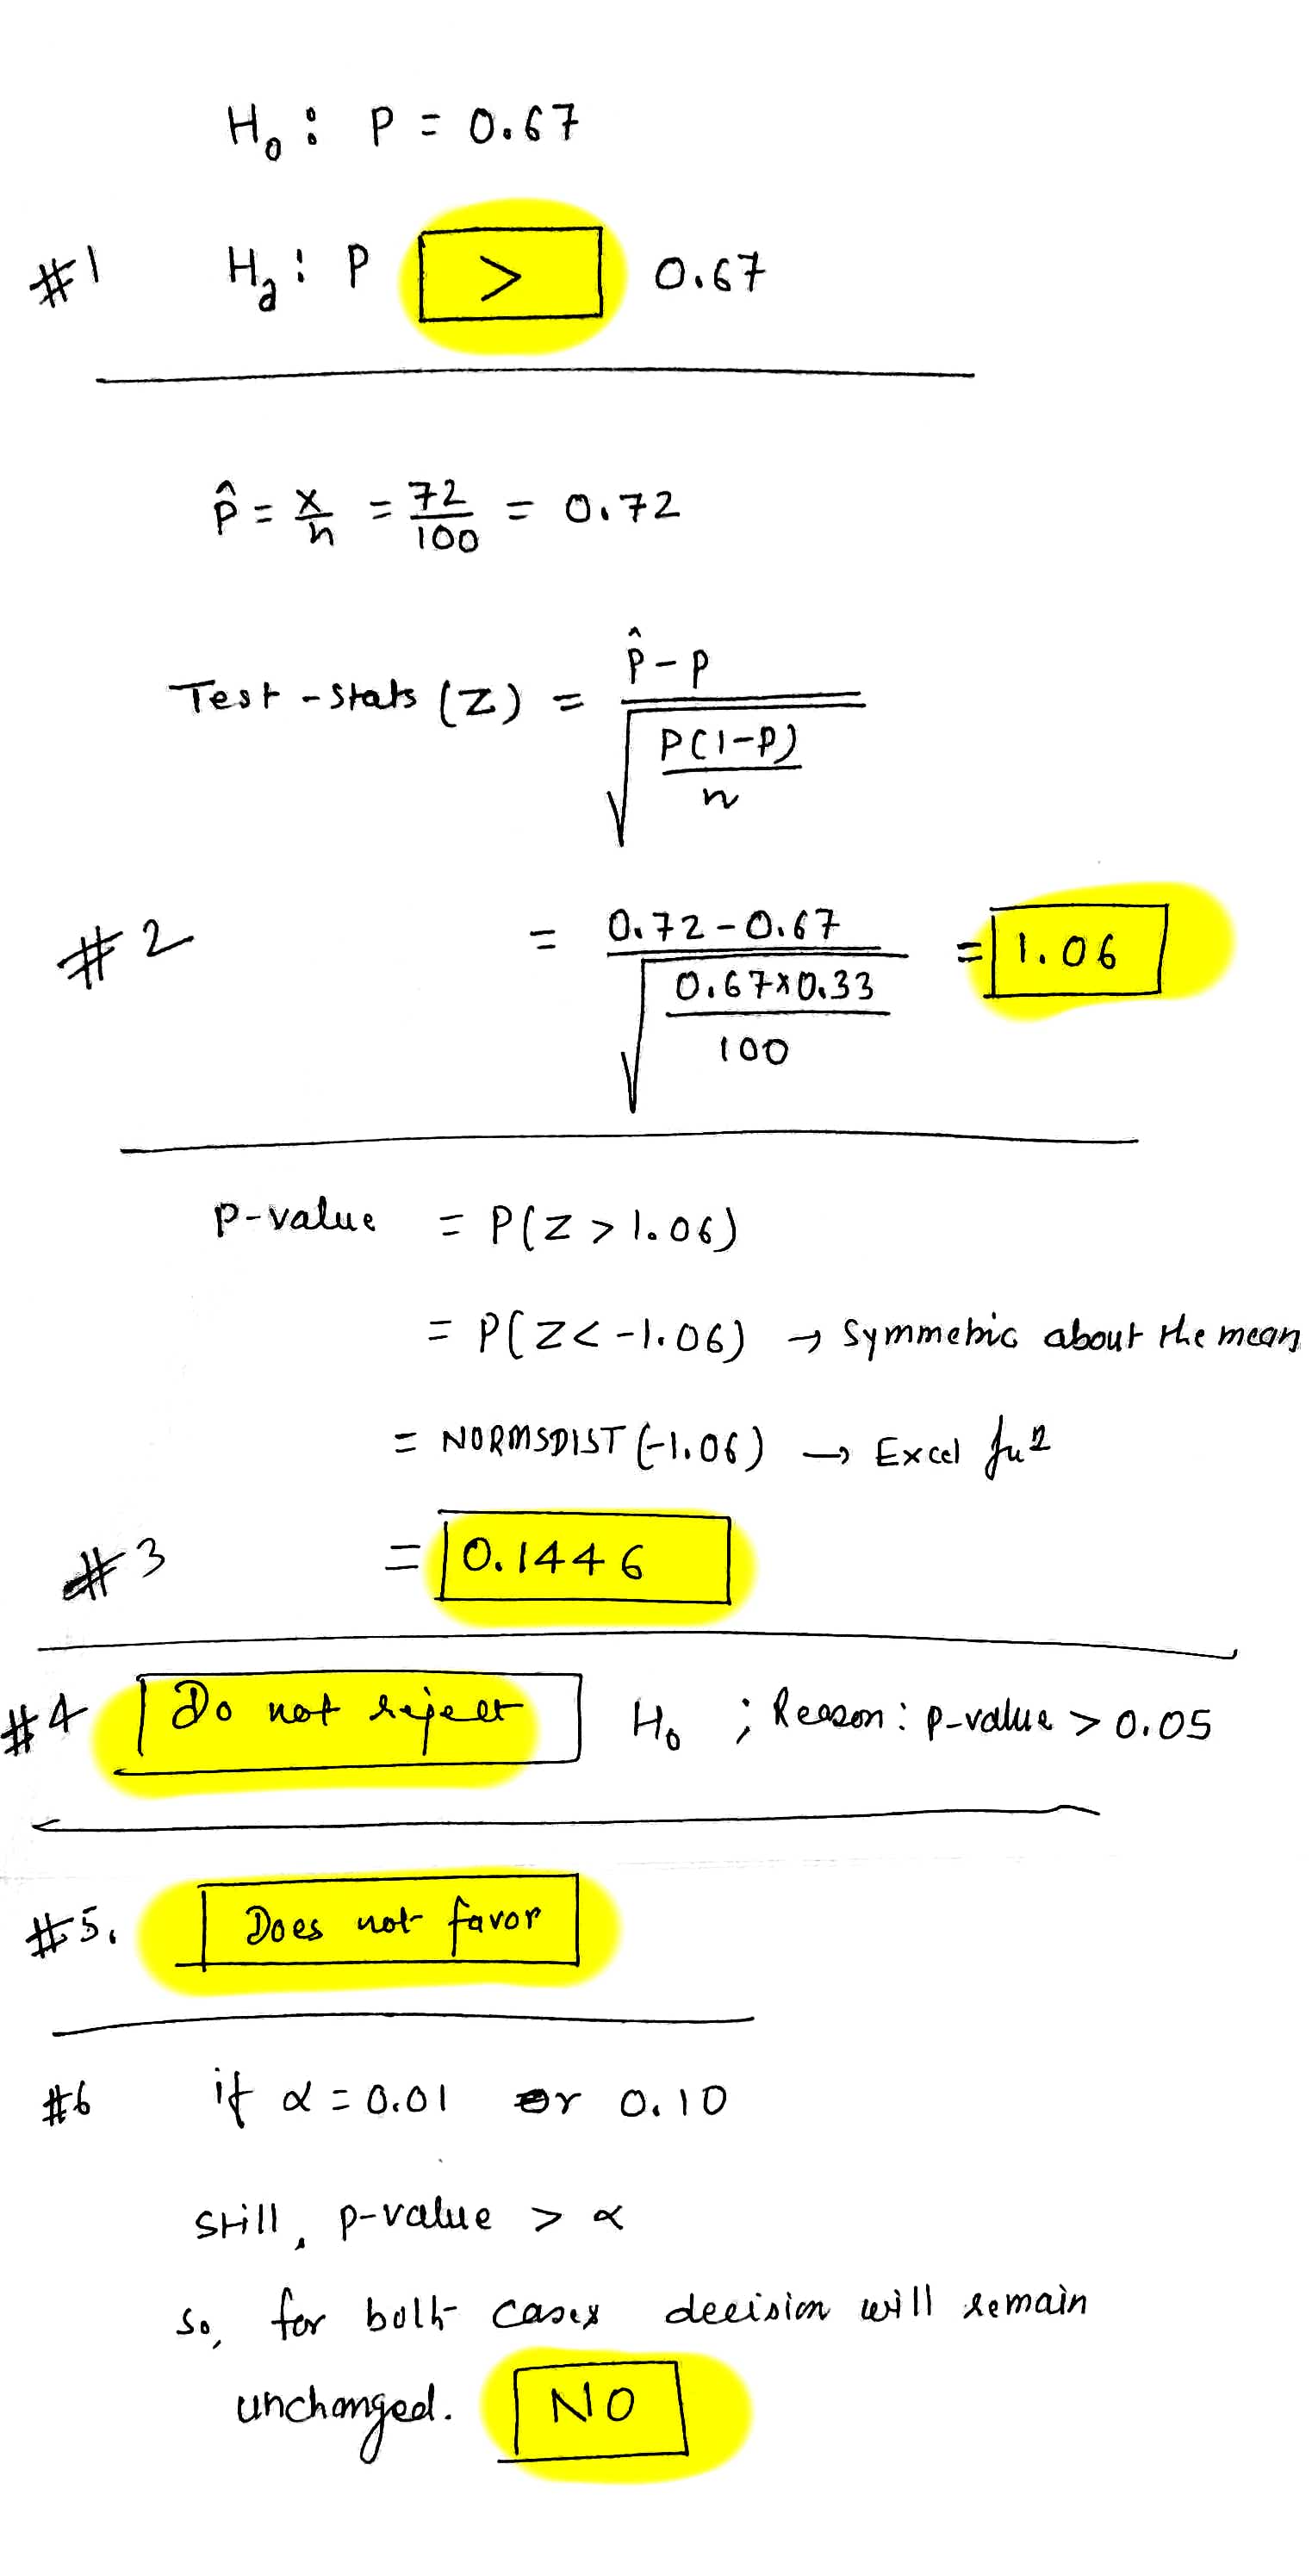 H₀ : P = 0.67
#1 Hₐ : P > 0.67
p̂ = x/n = 72/100 = 0.72
Test-stats (Z) = (p̂ - p) / √(P(1-P)/n)
#2 = (0.72 - 0.67) / √(0.67×0.33/100) = 1.06
P-value = P(Z > 1.06)
= P(Z < -1.06) → Symmetric about the mean
= NORMSDIST (-1.06) → Excel fun
#3 = 0.1446
#4 Do not reject H₀ ; Reason : p-value > 0.05
#5. Does not favor
#6 if α = 0.01 or 0.10
still, p-value > α
so, for both cases decision will remain
unchanged. NO